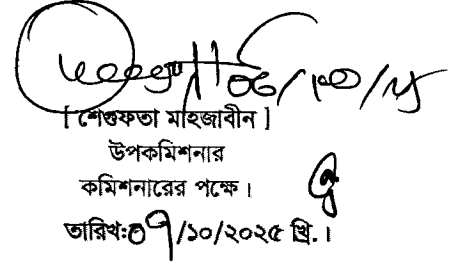 ০৬/১০/২৫
[ শেগুফতা মাহজাবীন ]
উপকমিশনার
কমিশনারের পক্ষে।
তারিখ:০৭/১০/২০২৫ খ্রি.।